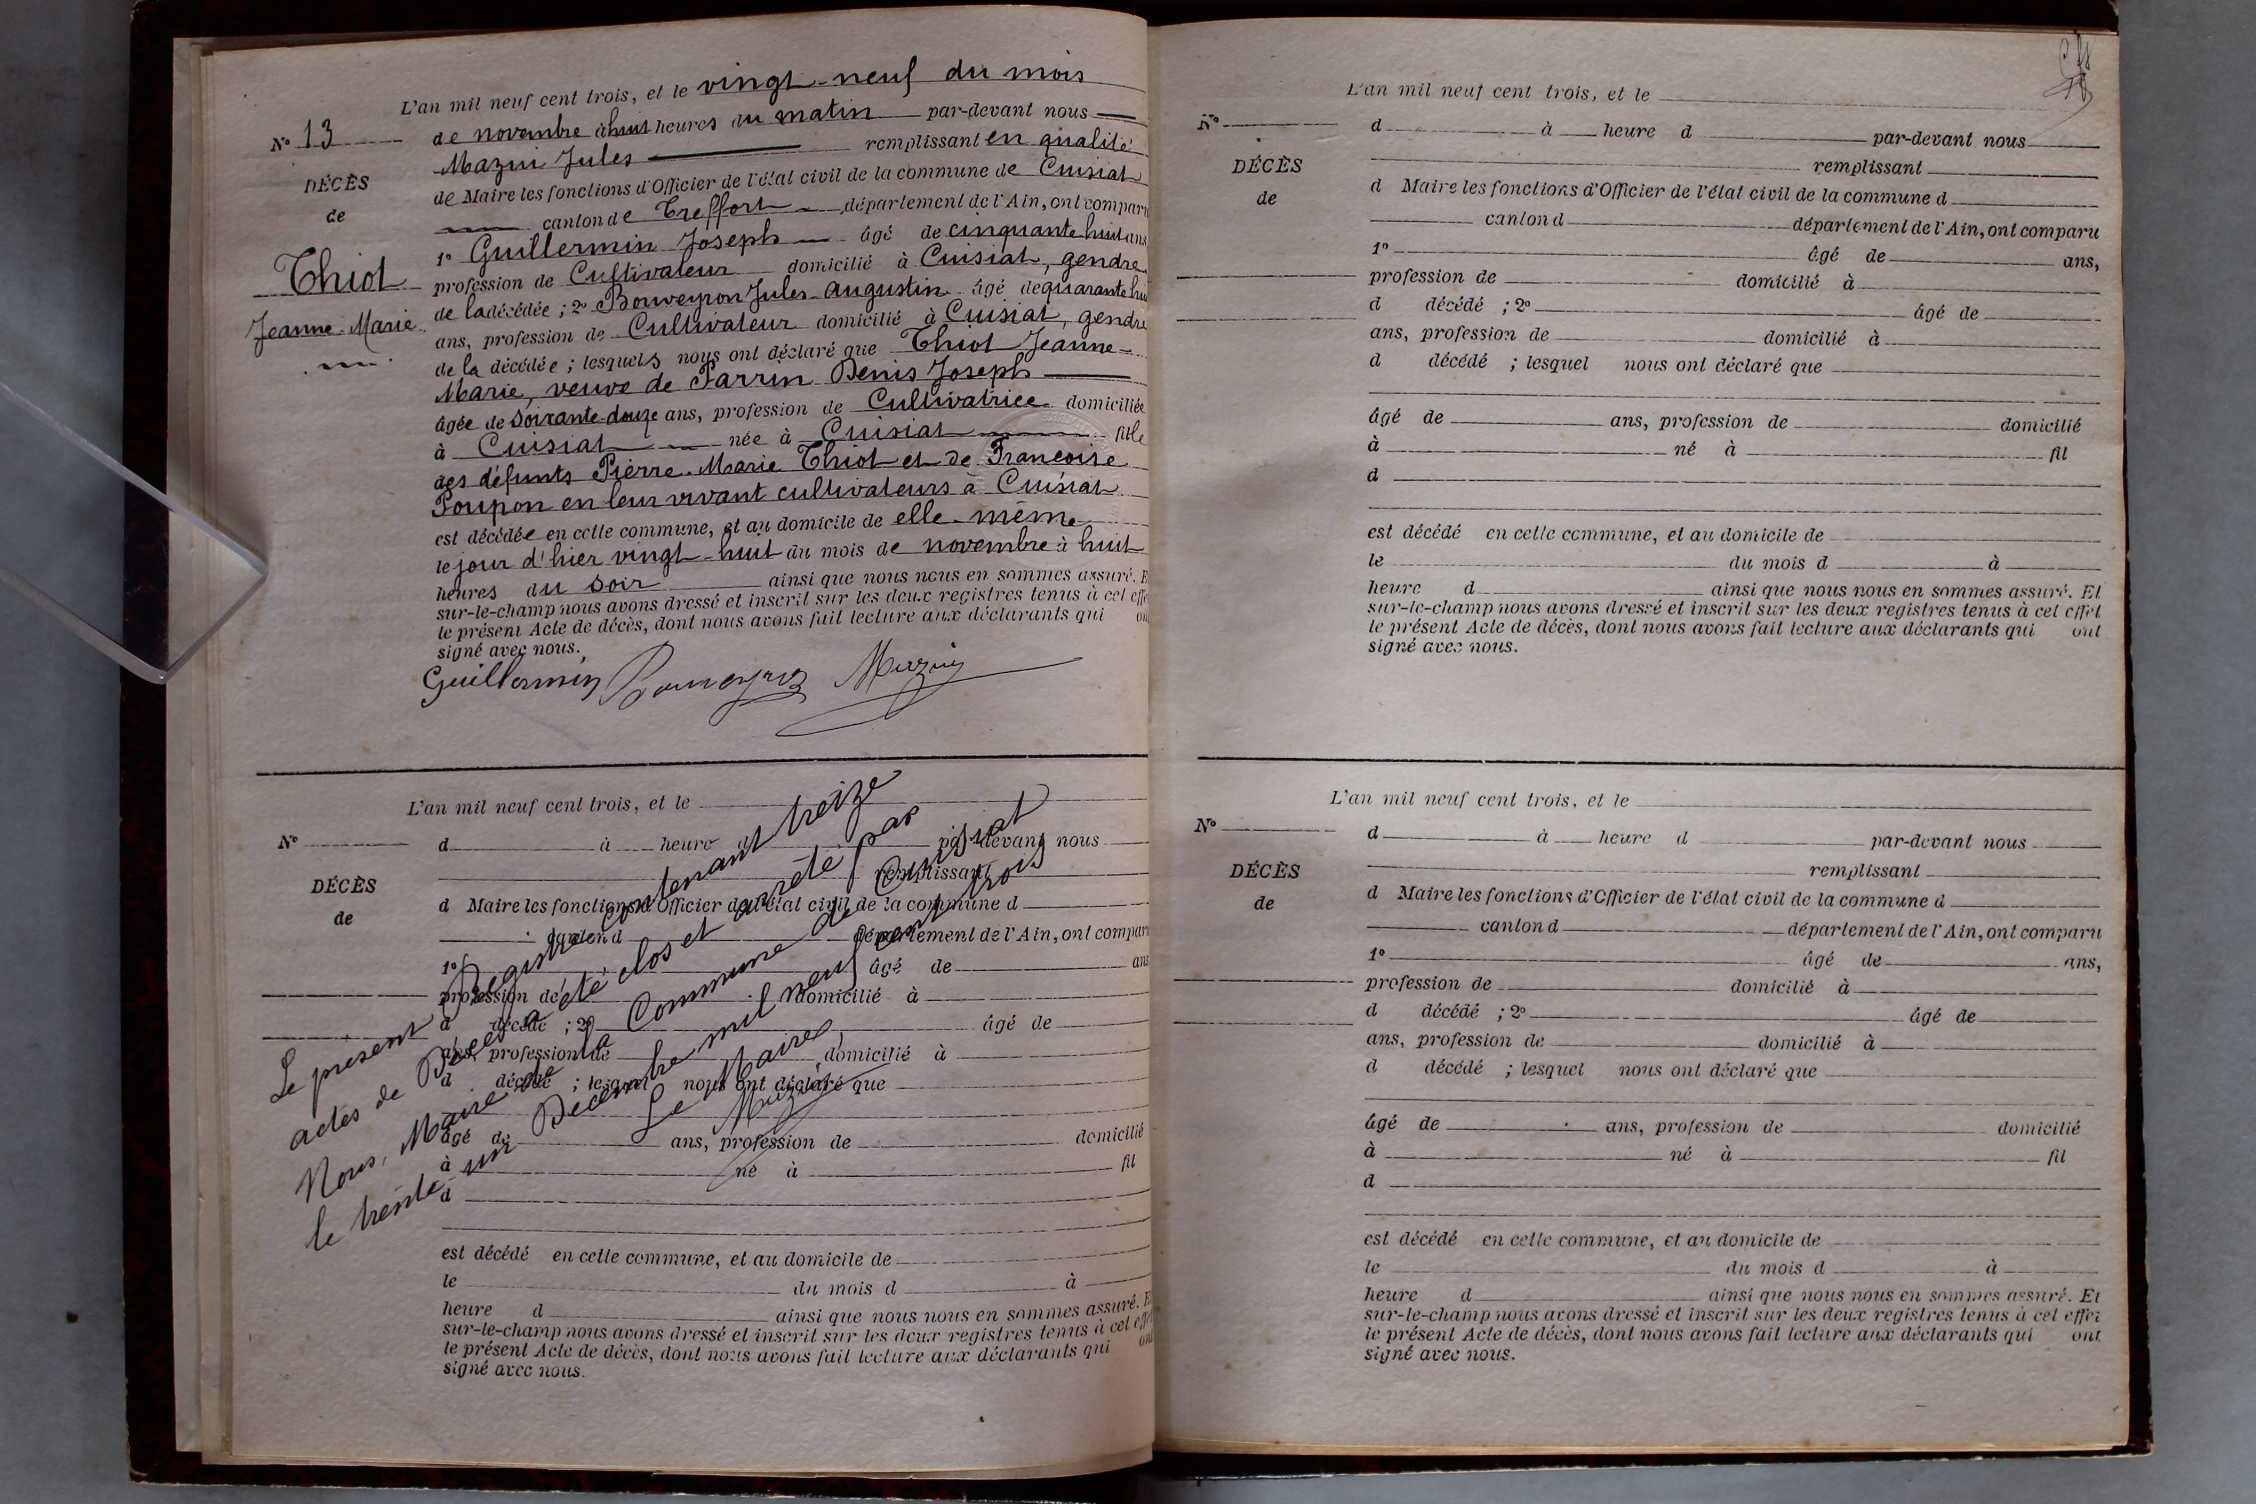 L'an mil neuf cent trois, et le vingt-neuf du mois
N° 13
de novembre à huit heures du matin par-devant nous
Mazui Jules remplissant en qualité
DÉCÈS
de Maire les fonctions d'Officier de l'état civil de la commune de Cuisiat
de
canton de Treffort département de l'Ain, ont comparu
1° Guillermin Joseph âgé de cinquante huit ans
Thiot
profession de Cultivateur domicilié à Cuisiat, gendre
de la décédée ; 2° Bouveyron Jules Augustin âgé de quarante hui
Jeanne-Marie
ans, profession de Cultivateur domicilié à Cuisiat, gendre
de la décédée ; lesquels nous ont déclaré que Thiot Jeanne-
Marie, veuve de Parrin Denis Joseph
âgée de soixante-douze ans, profession de Cultivatrice domiciliée
à Cuisiat née à Cuisiat fille
des défunts Pierre-Marie Thiot et de Françoise
Poupon en leur vivant cultivateurs à Cuisiat
est décédée en cette commune, et au domicile de elle-même
le jour d'hier vingt-huit du mois de novembre à huit
heures du soir ainsi que nous nous en sommes assuré. E
sur-le-champ nous avons dressé et inscrit sur les deux registres tenus à cet effe
le présent Acte de décès, dont nous avons fait lecture aux déclarants qui on
signé avec nous.
Guillermin Bouveyron Mazui
L'an mil neuf cent trois, et le
N°
d à heure d par-devant nous
remplissant
DÉCÈS
d Maire les fonctions d'Officier de l'état civil de la commune d
de
canton d département de l'Ain, ont compar
1° âgé de ans
profession de domicilié à
d décédé ; 2° âgé de
ans, profession de domicilié à
d décédé ; lesquel nous ont déclaré que
âgé de ans, profession de domicilié
à né à fil
d
est décédé en cette commune, et au domicile de
le du mois d à
heure d ainsi que nous nous en sommes assuré. E
sur-le-champ nous avons dressé et inscrit sur les deux registres tenus à cet effe
le présent Acte de décès, dont nous avons fait lecture aux déclarants qui on
signé avec nous.
Le présent Registre contenant treize
actes de Décès a été clos et arrêté par
Nous, Maire de la Commune de Cuisiat
le trente un Décembre mil neuf cent trois
Le Maire,
Mazui
L'an mil neuf cent trois, et le
N°
d à heure d par-devant nous
remplissant
DÉCÈS
d Maire les fonctions d'Officier de l'état civil de la commune d
de
canton d département de l'Ain, ont comparu
1° âgé de ans,
profession de domicilié à
d décédé ; 2° âgé de
ans, profession de domicilié à
d décédé ; lesquel nous ont déclaré que
âgé de ans, profession de domicilié
à né à fil
d
est décédé en cette commune, et au domicile de
le du mois d à
heure d ainsi que nous nous en sommes assuré. Et
sur-le-champ nous avons dressé et inscrit sur les deux registres tenus à cet effet
le présent Acte de décès, dont nous avons fait lecture aux déclarants qui ont
signé avec nous.
L'an mil neuf cent trois, et le
N°
d à heure d par-devant nous
remplissant
DÉCÈS
d Maire les fonctions d'Officier de l'état civil de la commune d
de
canton d département de l'Ain, ont comparu
1° âgé de ans,
profession de domicilié à
d décédé ; 2° âgé de
ans, profession de domicilié à
d décédé ; lesquel nous ont déclaré que
âgé de ans, profession de domicilié
à né à fil
d
est décédé en cette commune, et au domicile de
le du mois d à
heure d ainsi que nous nous en sommes assuré. Et
sur-le-champ nous avons dressé et inscrit sur les deux registres tenus à cet effet
le présent Acte de décès, dont nous avons fait lecture aux déclarants qui ont
signé avec nous.